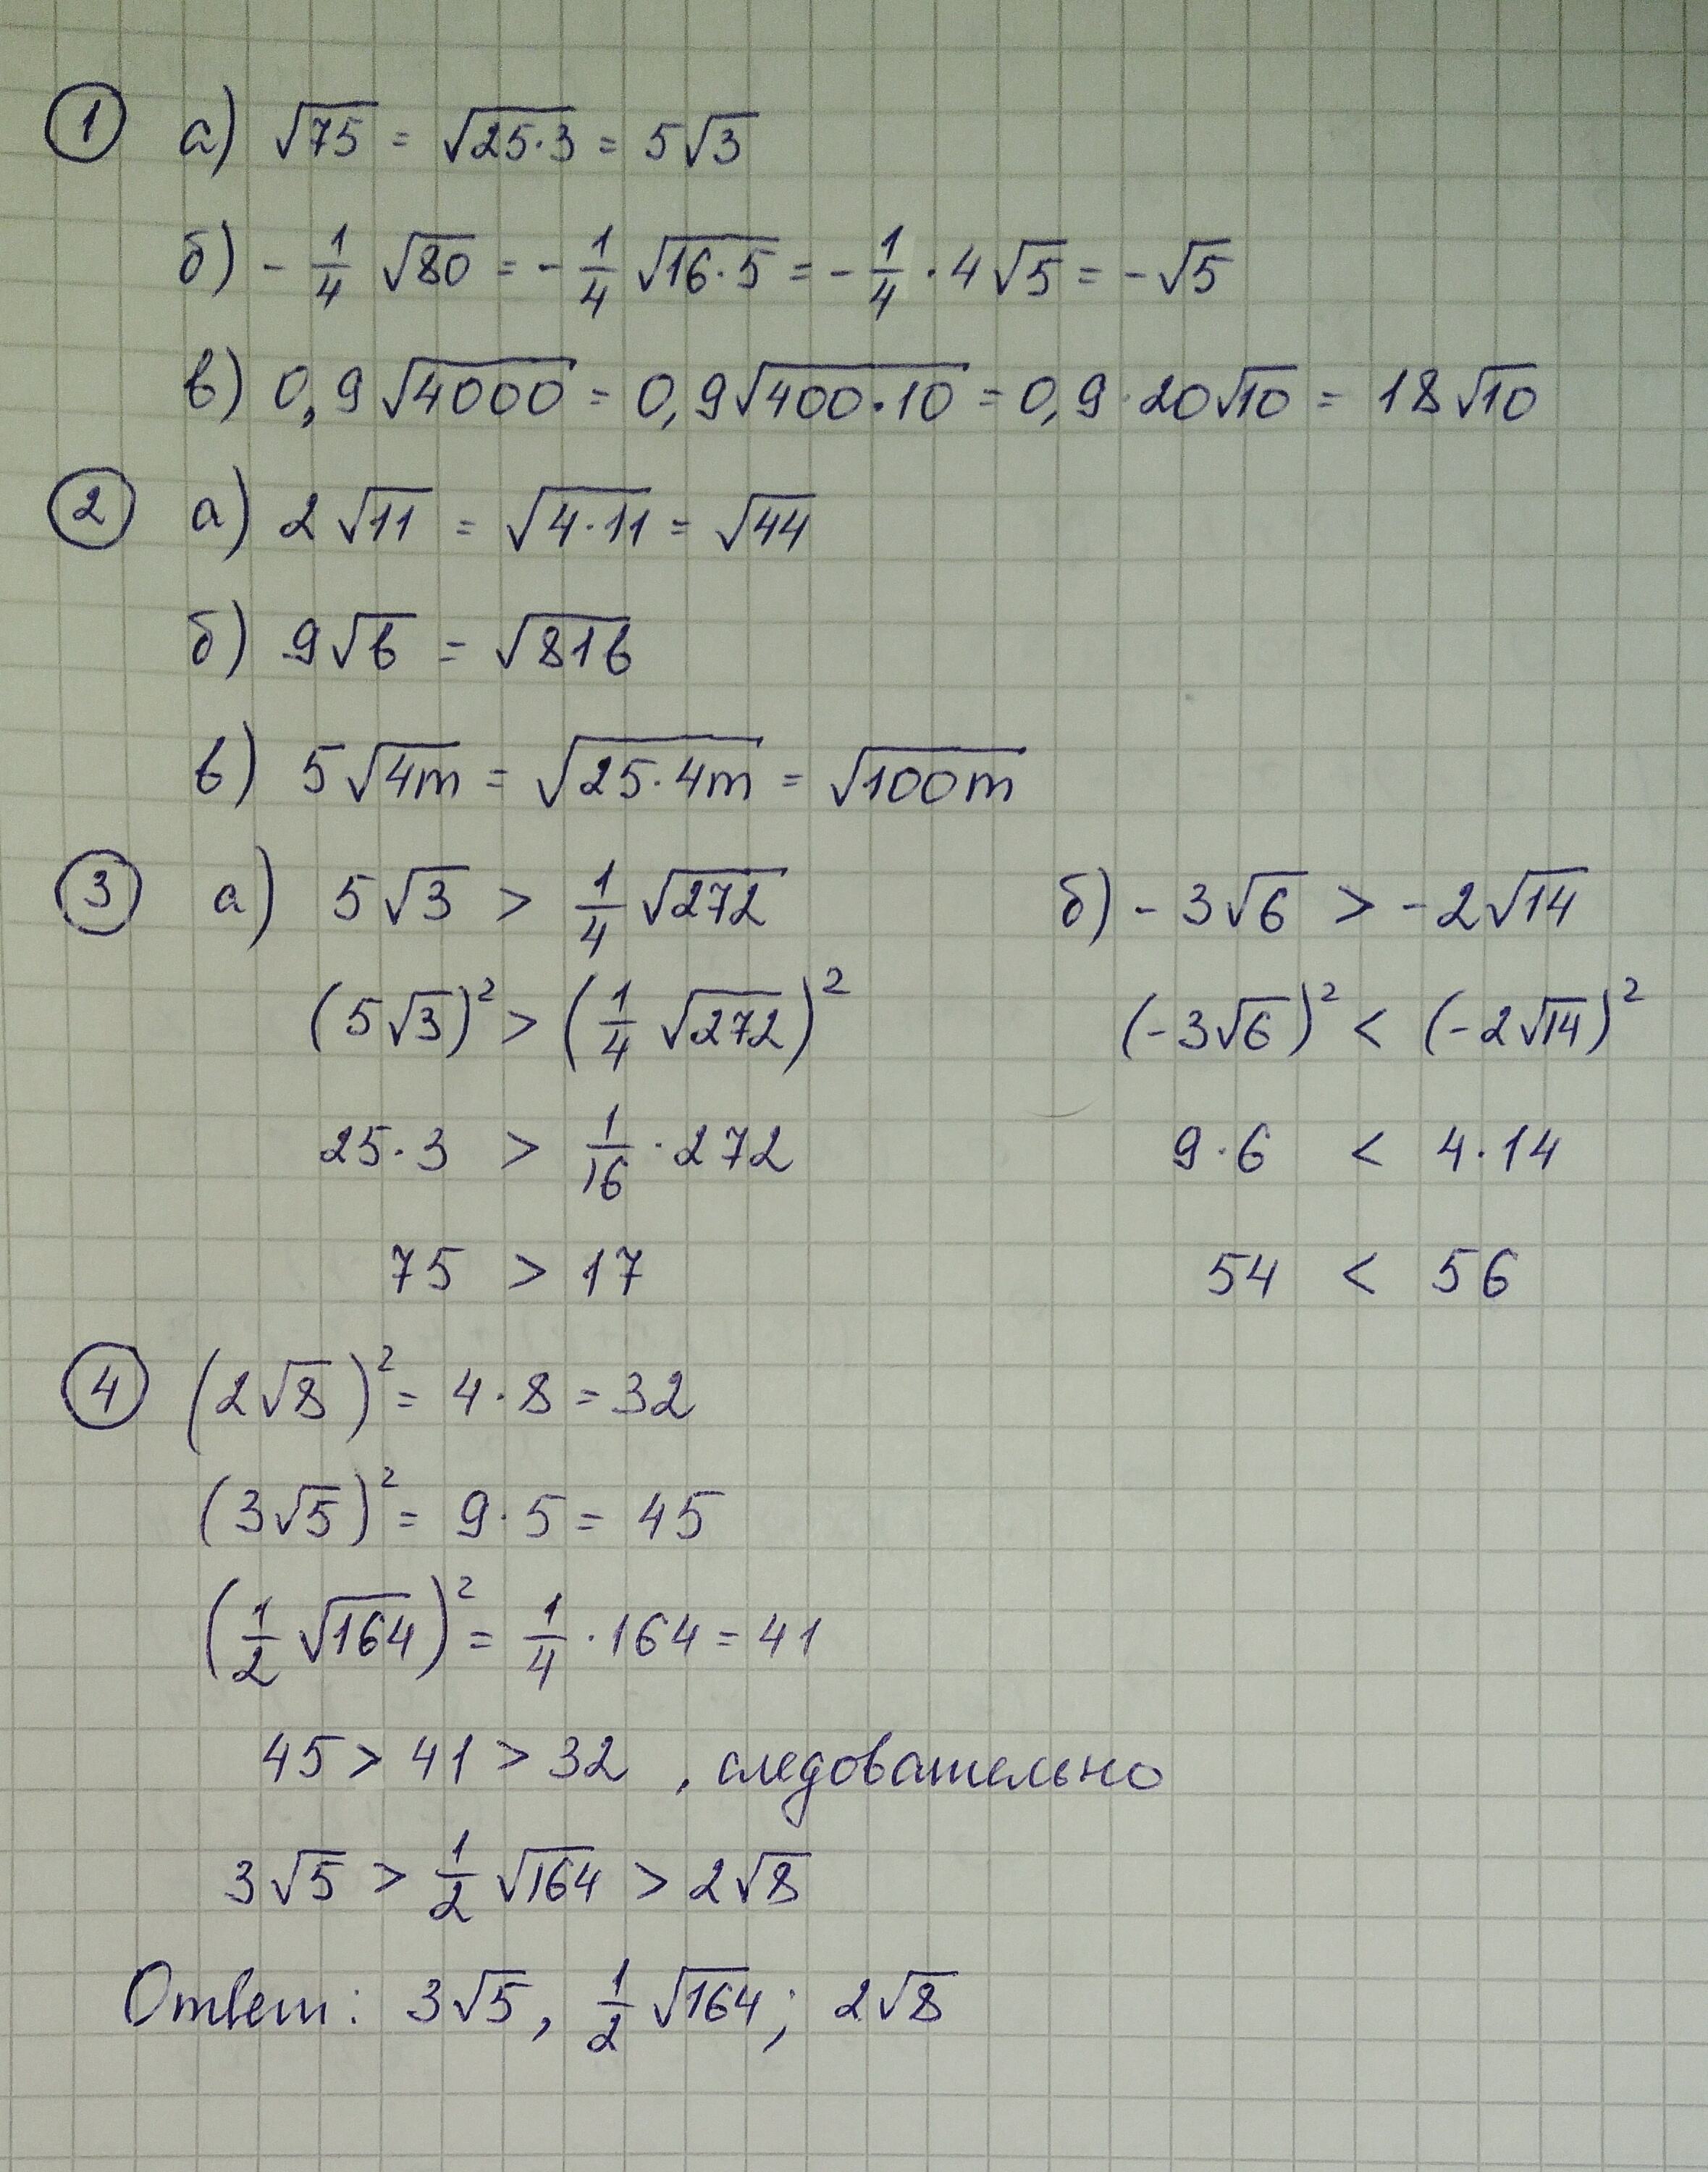 ① а) √75 = √25·3 = 5√3
б) - 1/4 √80 = - 1/4 √16·5 = - 1/4 · 4√5 = -√5
в) 0,9√4000 = 0,9√400·10 = 0,9·20√10 = 18√10
② а) 2√11 = √4·11 = √44
б) 9√в = √81в
в) 5√4m = √25·4m = √100m
③ а) 5√3 > 1/4 √272
(5√3)² > (1/4 √272)²
25·3 > 1/16 · 272
75 > 17
б) - 3√6 > - 2√14
(-3√6)² < (-2√14)²
9·6 < 4·14
54 < 56
④ (2√8)² = 4·8 = 32
(3√5)² = 9·5 = 45
(1/2 √164)² = 1/4 · 164 = 41
45 > 41 > 32 , следовательно
3√5 > 1/2 √164 > 2√8
Ответ: 3√5, 1/2 √164; 2√8